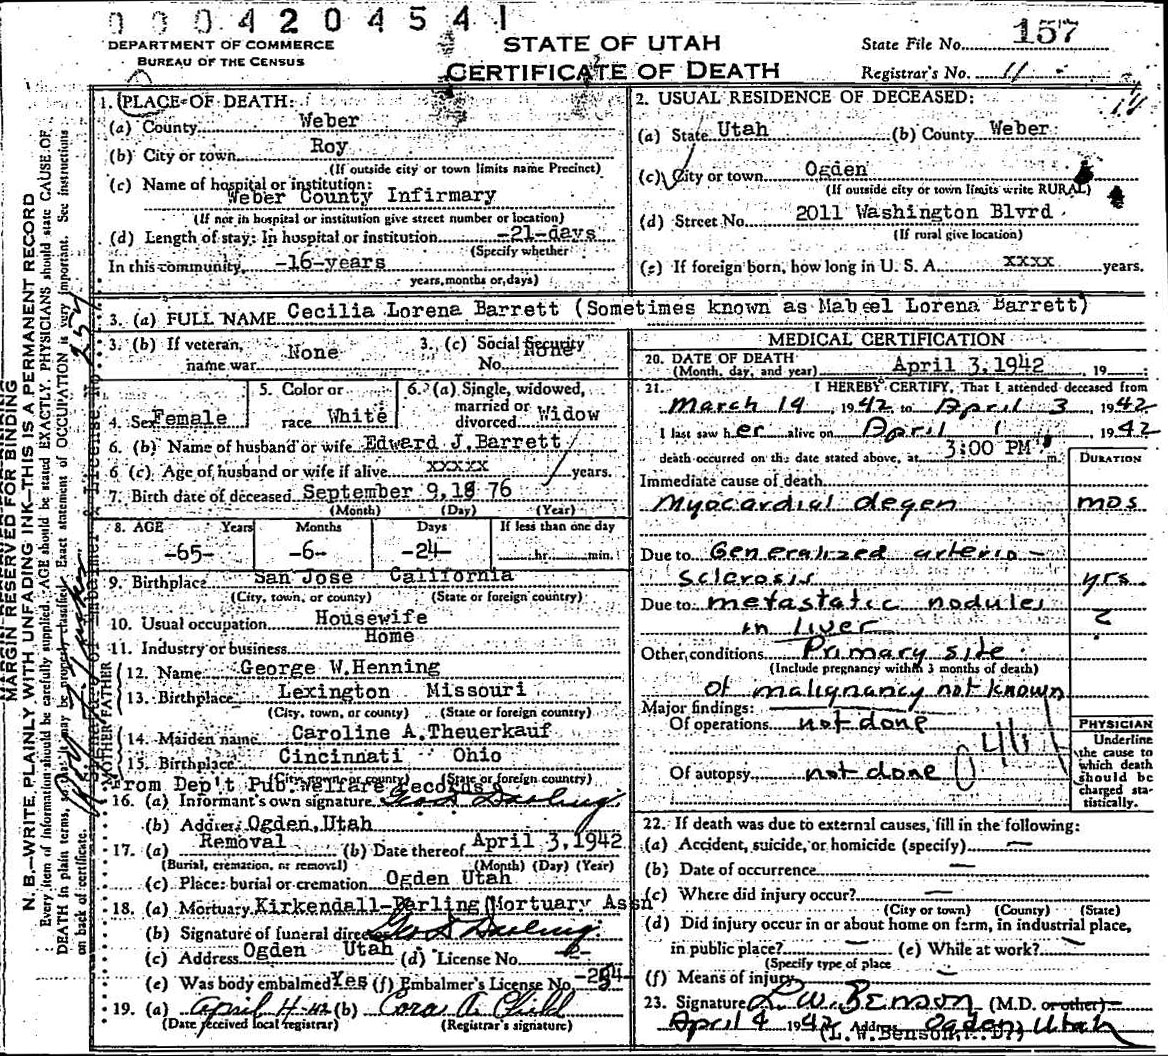 0 0 0 4 2 0 4 5 4 1
DEPARTMENT OF COMMERCE
BUREAU OF THE CENSUS
STATE OF UTAH
CERTIFICATE OF DEATH
State File No. 157
Registrar's No. 11
MARGIN RESERVED FOR BINDING
N. B.—WRITE PLAINLY WITH UNFADING INK—THIS IS A PERMANENT RECORD
Every item of information should be carefully supplied. AGE should be stated EXACTLY. PHYSICIANS should state CAUSE OF
DEATH in plain terms, so that it may be properly classified. Exact statement of OCCUPATION is very important. See instructions
on back of certificate.
1. PLACE OF DEATH:
(a) County Weber
(b) City or town Roy
(If outside city or town limits name Precinct)
(c) Name of hospital or institution:
Weber County Infirmary
(If not in hospital or institution give street number or location)
(d) Length of stay: In hospital or institution -21-days
(Specify whether
In this community -16-years
years, months or, days)
2. USUAL RESIDENCE OF DECEASED:
(a) State Utah (b) County Weber
(c) City or town Ogden
(If outside city or town limits write RURAL)
(d) Street No. 2011 Washington Blvrd.
(If rural give location)
(e) If foreign born, how long in U. S. A. xxxx years.
3. (a) FULL NAME Cecilia Lorena Barrett (Sometimes known as Mabeel Lorena Barrett)
3. (b) If veteran, name war None
3. (c) Social Security No. None
4. Sex Female
5. Color or race White
6. (a) Single, widowed, married or divorced Widow
6. (b) Name of husband or wife Edward J. Barrett
6 (c) Age of husband or wife if alive xxxxx years.
7. Birth date of deceased September 9, 18 76
(Month) (Day) (Year)
8. AGE Years Months Days If less than one day
-65- -6- -24- hr. min.
9. Birthplace San Jose California
(City, town, or county) (State or foreign country)
10. Usual occupation Housewife
11. Industry or business Home
FATHER
12. Name George W. Henning
13. Birthplace Lexington Missouri
(City, town, or county) (State or foreign country)
MOTHER
14. Maiden name Caroline A. Theuerkauf
15. Birthplace Cincinnati Ohio
(City, town or county) (State or foreign country)
From Dep't Pub. Welfare records
16. (a) Informant's own signature Geo S Darling
(b) Address Ogden, Utah
17. (a) Removal (b) Date thereof April 3, 1942
(Burial, cremation, or removal) (Month) (Day) (Year)
(c) Place: burial or cremation Ogden Utah
18. (a) Mortuary Kirkendall-Darling Mortuary Assn
(b) Signature of funeral director Geo S Darling
(c) Address Ogden Utah (d) License No.
(e) Was body embalmed Yes (f) Embalmer's License No. -254-
19. (a) April 4-42 (b) Cora A Child
(Date received local registrar) (Registrar's signature)
MEDICAL CERTIFICATION
20. DATE OF DEATH
(Month, day, and year) April 3, 1942, 19
21. I HEREBY CERTIFY, That I attended deceased from
March 14, 1942 to April 3, 1942
I last saw her alive on April 1, 1942
death occurred on the date stated above, at 3:00 PM m.
DURATION
Immediate cause of death
Myocardial degen mos
Due to Generalized arterio-
sclerosis yrs.
Due to metastatic nodules
in liver ?
Other conditions Primary site
(Include pregnancy within 3 months of death)
of malignancy not known
Major findings:
Of operations not done
Of autopsy not done
PHYSICIAN
Underline
the cause to
which death
should be
charged sta-
tistically.
22. If death was due to external causes, fill in the following:
(a) Accident, suicide, or homicide (specify) —
(b) Date of occurrence —
(c) Where did injury occur? —
(City or town) (County) (State)
(d) Did injury occur in or about home on farm, in industrial place,
in public place? — (e) While at work? —
(Specify type of place
(f) Means of injury —
23. Signature L.W. Benson (M.D. or other)
April 4 1942 Address Ogden, Utah